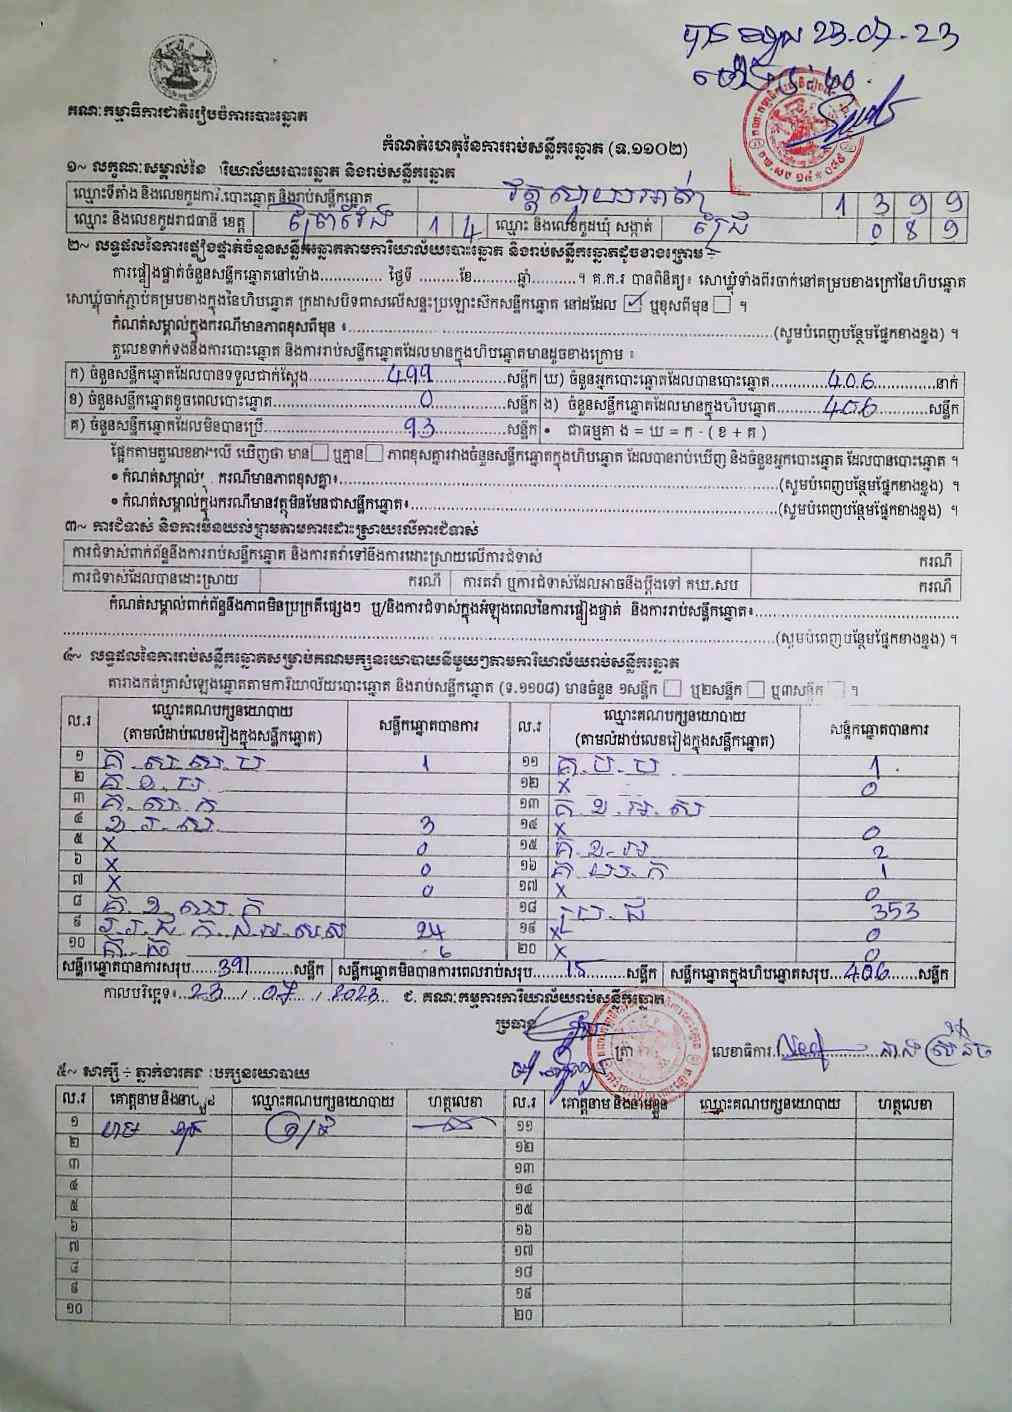 បាន ទទួល 23.07.23
គណៈកម្មាធិការជាតិរៀបចំការបោះឆ្នោត
កំណត់ហេតុនៃការរាប់សន្លឹកឆ្នោត (ទ.១១០២)
១~ លក្ខណៈសម្គាល់នៃ ការិយាល័យបោះឆ្នោត និងរាប់សន្លឹកឆ្នោត
ឈ្មោះទីតាំង និងលេខកូដការិ.បោះឆ្នោត និងរាប់សន្លឹកឆ្នោត វត្តស្វាយអាត់ 1 3 9 9
ឈ្មោះ និងលេខកូដរាជធានី ខេត្ត ព្រៃវែង 1 4 ឈ្មោះ និងលេខកូដឃុំ សង្កាត់ ព្រៃ 0 8 9
២~ លទ្ធផលនៃការផ្ទៀងផ្ទាត់ចំនួនសន្លឹកឆ្នោតតាមការិយាល័យបោះឆ្នោត និងរាប់សន្លឹកឆ្នោតដូចខាងក្រោម ÷
ការផ្ទៀងផ្ទាត់ចំនួនសន្លឹកឆ្នោតនៅម៉ោង.............. ថ្ងៃទី ..........ខែ..........ឆ្នាំ..........។ គ.ក.រ បានពិនិត្យ៖ សោឃ្លុំទាំងពីរចាក់នៅគម្របខាងក្រៅនៃហិបឆ្នោត
សោឃ្លុំចាក់ភ្ជាប់គម្របខាងក្នុងនៃហិបឆ្នោត ក្រដាសបិទពាសលើសន្ទះប្រឡោះស៊កសន្លឹកឆ្នោត នៅដដែល ☑ ឬខុសពីមុន ☐ ។
កំណត់សម្គាល់ក្នុងករណីមានភាពខុសពីមុន ៖..........(សូមបំពេញបន្ថែមផ្នែកខាងខ្នង) ។
តួលេខទាក់ទងនឹងការបោះឆ្នោត និងការរាប់សន្លឹកឆ្នោតដែលមានក្នុងហិបឆ្នោតមានដូចខាងក្រោម ៖
ក) ចំនួនសន្លឹកឆ្នោតដែលបានទទួលជាក់ស្តែង 499 សន្លឹក ឃ) ចំនួនអ្នកបោះឆ្នោតដែលបានបោះឆ្នោត 406 នាក់
ខ) ចំនួនសន្លឹកឆ្នោតខូចពេលបោះឆ្នោត 0 សន្លឹក ង) ចំនួនសន្លឹកឆ្នោតដែលមានក្នុងហិបឆ្នោត 406 សន្លឹក
គ) ចំនួនសន្លឹកឆ្នោតដែលមិនបានប្រើ 93 សន្លឹក • ជាធម្មតា ង = ឃ = ក - ( ខ + គ )
ផ្អែកតាមតួលេខខាងលើ ឃើញថា មាន ☐ ឬគ្មាន ☐ ភាពខុសគ្នារវាងចំនួនសន្លឹកឆ្នោតក្នុងហិបឆ្នោត ដែលបានរាប់ឃើញ និងចំនួនអ្នកបោះឆ្នោត ដែលបានបោះឆ្នោត ។
• កំណត់សម្គាល់ ករណីមានភាពខុសគ្នា៖..........(សូមបំពេញបន្ថែមផ្នែកខាងខ្នង) ។
• កំណត់សម្គាល់ក្នុងករណីមានវត្ថុមិនមែនជាសន្លឹកឆ្នោត៖..........(សូមបំពេញបន្ថែមផ្នែកខាងខ្នង) ។
៣~ ការជំទាស់ និងការមិនយល់ព្រមតាមការដោះស្រាយលើការជំទាស់
ការជំទាស់ពាក់ព័ន្ធនឹងការរាប់សន្លឹកឆ្នោត និងការតវ៉ាទៅនឹងការដោះស្រាយលើការជំទាស់ ករណី
ការជំទាស់ដែលបានដោះស្រាយ ករណី ការតវ៉ា ឬការជំទាស់ដែលអាចនឹងប្តឹងទៅ គឃ.សប ករណី
កំណត់សម្គាល់ពាក់ព័ន្ធនឹងភាពមិនប្រក្រតីផ្សេងៗ ឬ/និងការជំទាស់ក្នុងអំឡុងពេលនៃការផ្ទៀងផ្ទាត់ និងការរាប់សន្លឹកឆ្នោត៖..........
..........(សូមបំពេញបន្ថែមផ្នែកខាងខ្នង) ។
៤~ លទ្ធផលនៃការរាប់សន្លឹកឆ្នោតសម្រាប់គណបក្សនយោបាយនីមួយៗតាមការិយាល័យរាប់សន្លឹកឆ្នោត
តារាងកត់ត្រាសំឡេងឆ្នោតតាមការិយាល័យបោះឆ្នោត និងរាប់សន្លឹកឆ្នោត (ទ.១១០៨) មានចំនួន ១សន្លឹក ☐ ឬ២សន្លឹក ☐ ឬ៣សន្លឹក ☐ ។
ល.រ ឈ្មោះគណបក្សនយោបាយ (តាមលំដាប់លេខរៀងក្នុងសន្លឹកឆ្នោត) សន្លឹកឆ្នោតបានការ ល.រ ឈ្មោះគណបក្សនយោបាយ (តាមលំដាប់លេខរៀងក្នុងសន្លឹកឆ្នោត) សន្លឹកឆ្នោតបានការ
១ គ.ស.ស.ប 1 ១១ គ.ប.ប 1
២ គ.ខ.ប ១២ X 0
៣ គ.ស.ក ១៣ គ.ខ.អ.ស
៤ ខ.រ.ស 3 ១៤ X 0
៥ X 0 ១៥ គ.ខ.រ 2
៦ X 0 ១៦ គ.ឃ.ក 1
៧ X 0 ១៧ X 0
៨ គ.ខ.ឃ.ក ១៨ ប្រ.ជ 353
៩ 24 ១៩ X 0
១០ គ.ធ 6 ២០ X 0
សន្លឹកឆ្នោតបានការសរុប 391 សន្លឹក សន្លឹកឆ្នោតមិនបានការពេលរាប់សរុប 15 សន្លឹក សន្លឹកឆ្នោតក្នុងហិបឆ្នោតសរុប 406 សន្លឹក
កាលបរិច្ឆេទ៖ 23 / 07 / 2023 ជ. គណៈកម្មការការិយាល័យរាប់សន្លឹកឆ្នោត
ប្រធាន ត្រា លេខាធិការ
៥~ សាក្សី ÷ ភ្នាក់ងារគណបក្សនយោបាយ
ល.រ គោត្តនាម និងនាមខ្លួន ឈ្មោះគណបក្សនយោបាយ ហត្ថលេខា ល.រ គោត្តនាម និងនាមខ្លួន ឈ្មោះគណបក្សនយោបាយ ហត្ថលេខា
១ ១១
២ ១២
៣ ១៣
៤ ១៤
៥ ១៥
៦ ១៦
៧ ១៧
៨ ១៨
៩ ១៩
១០ ២០